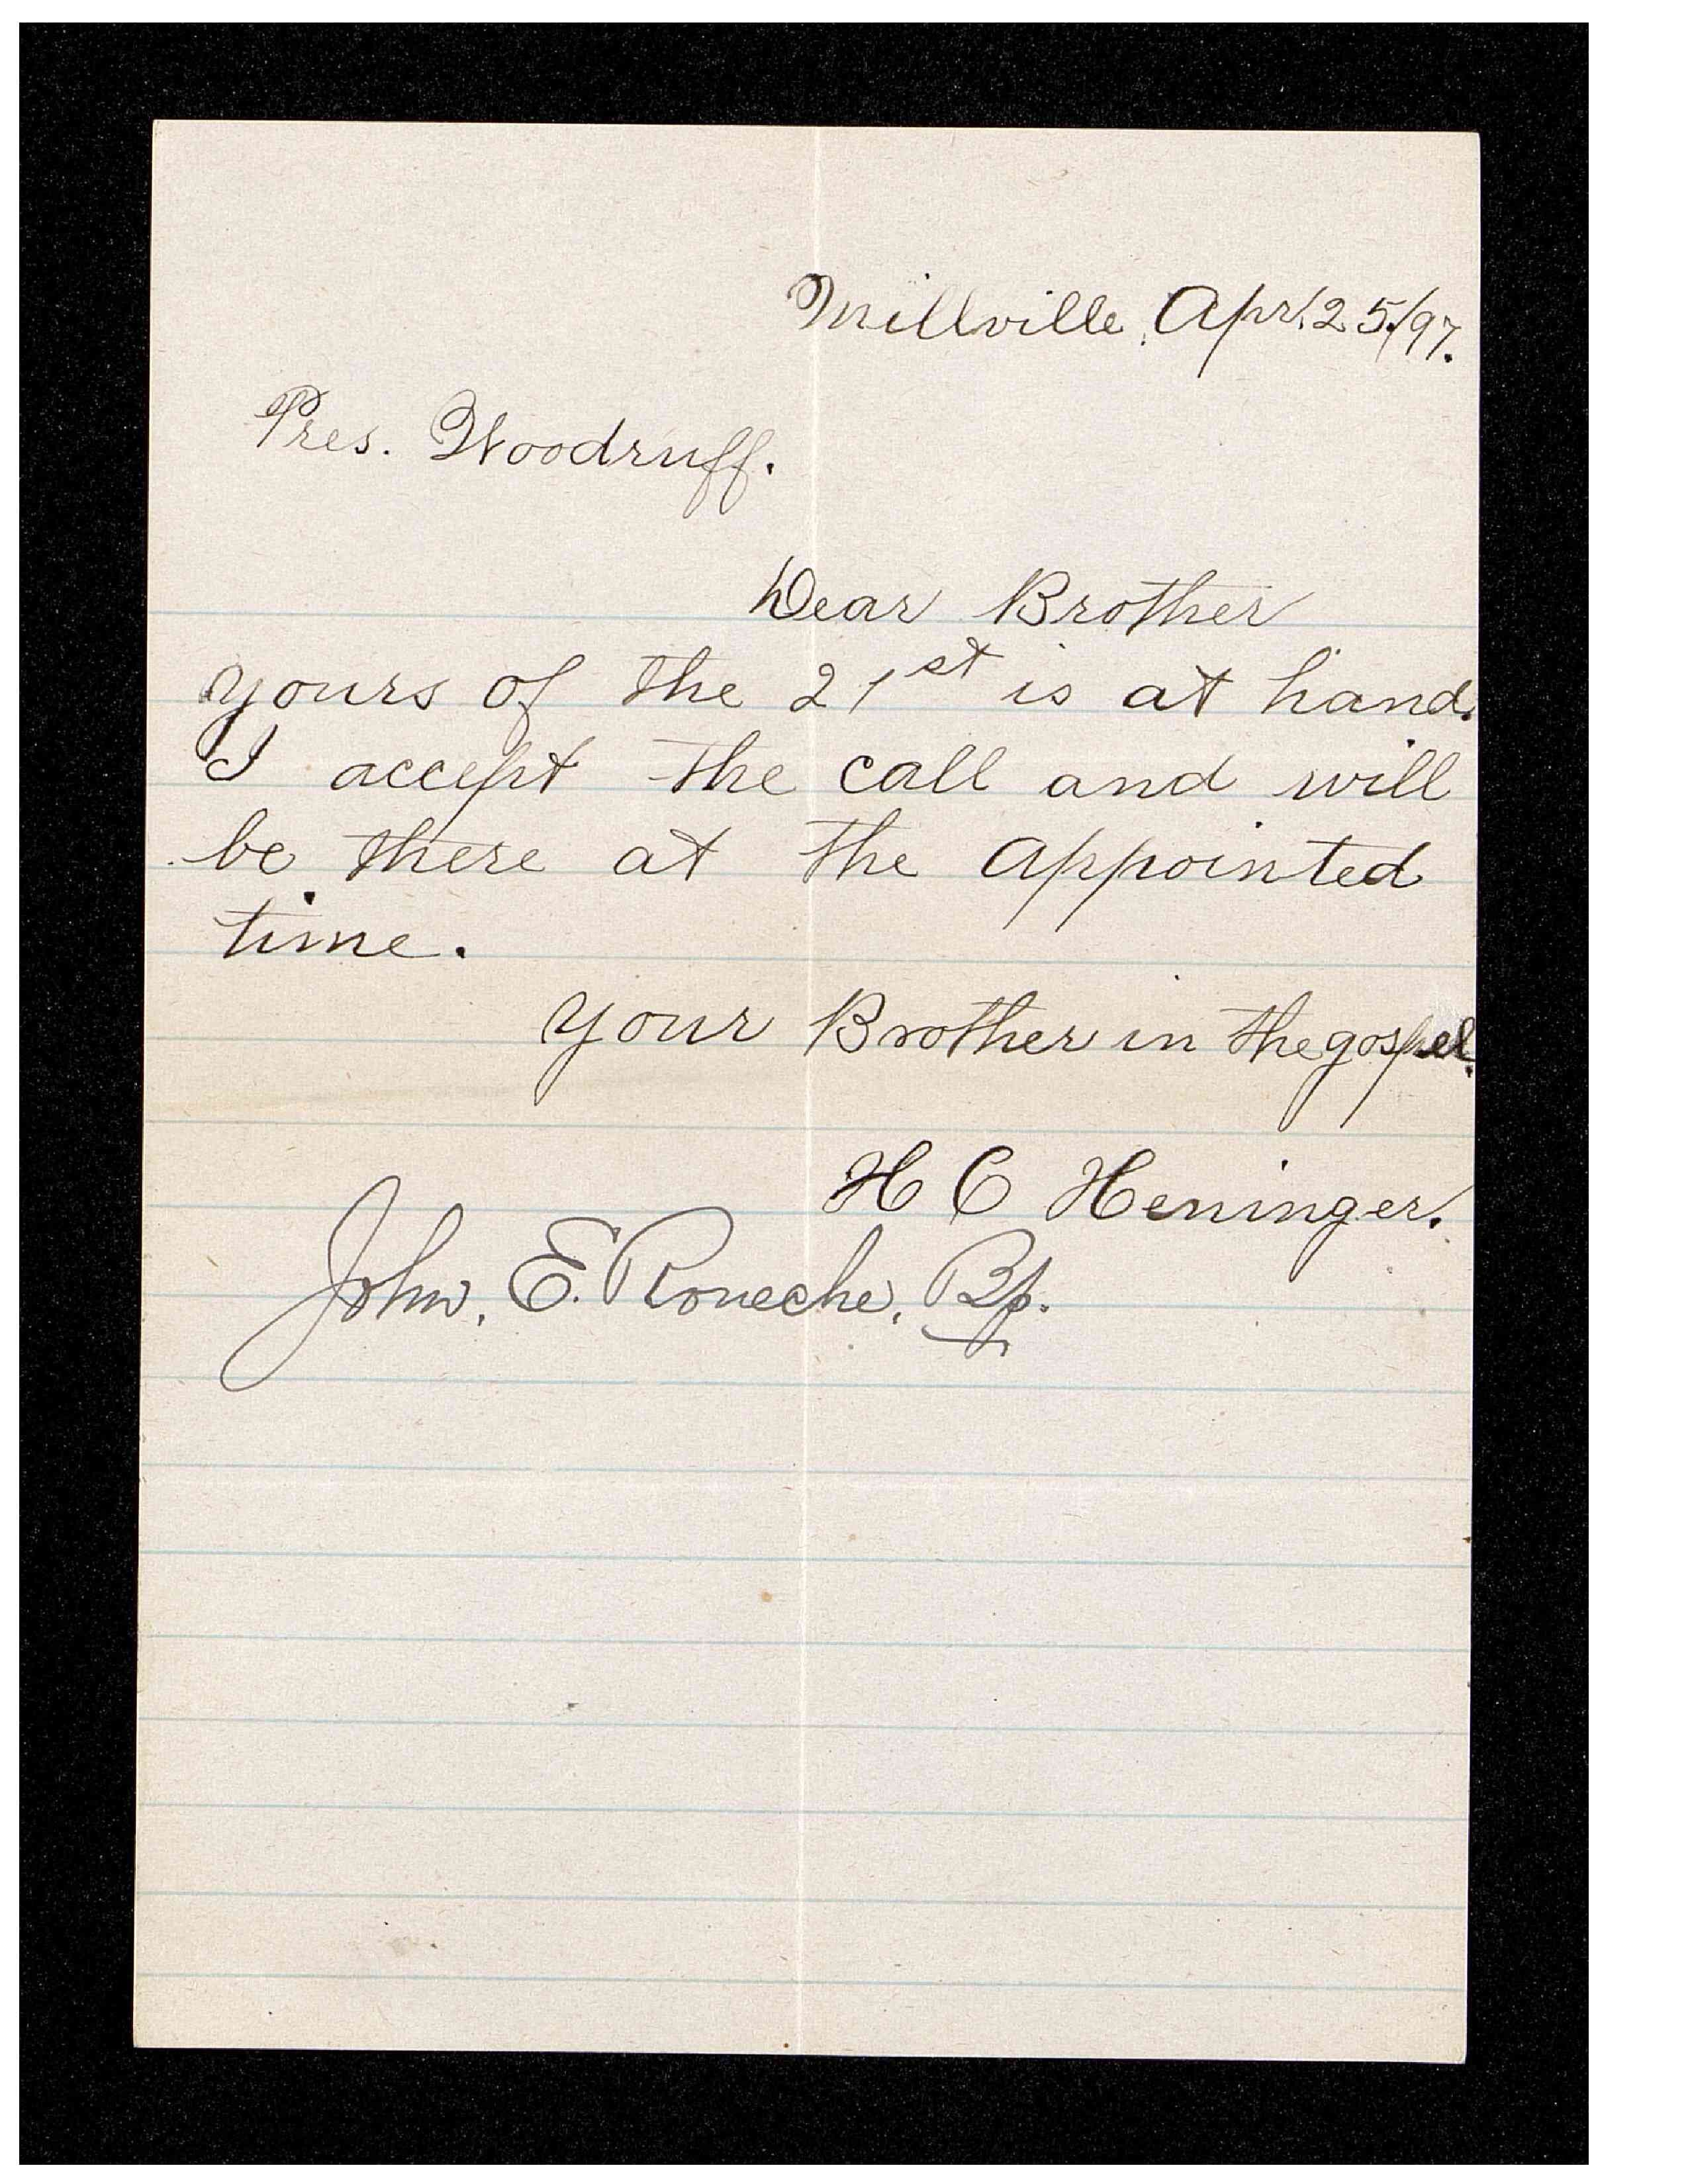 Millville, Apr. 25./97.
Pres. Woodruff.
Dear Brother
yours of the 21st is at hand.
I accept the call and will
be there at the appointed
time.
Your Brother in the gospel.
H C Heninger.
John. E. Roueche, Bp.